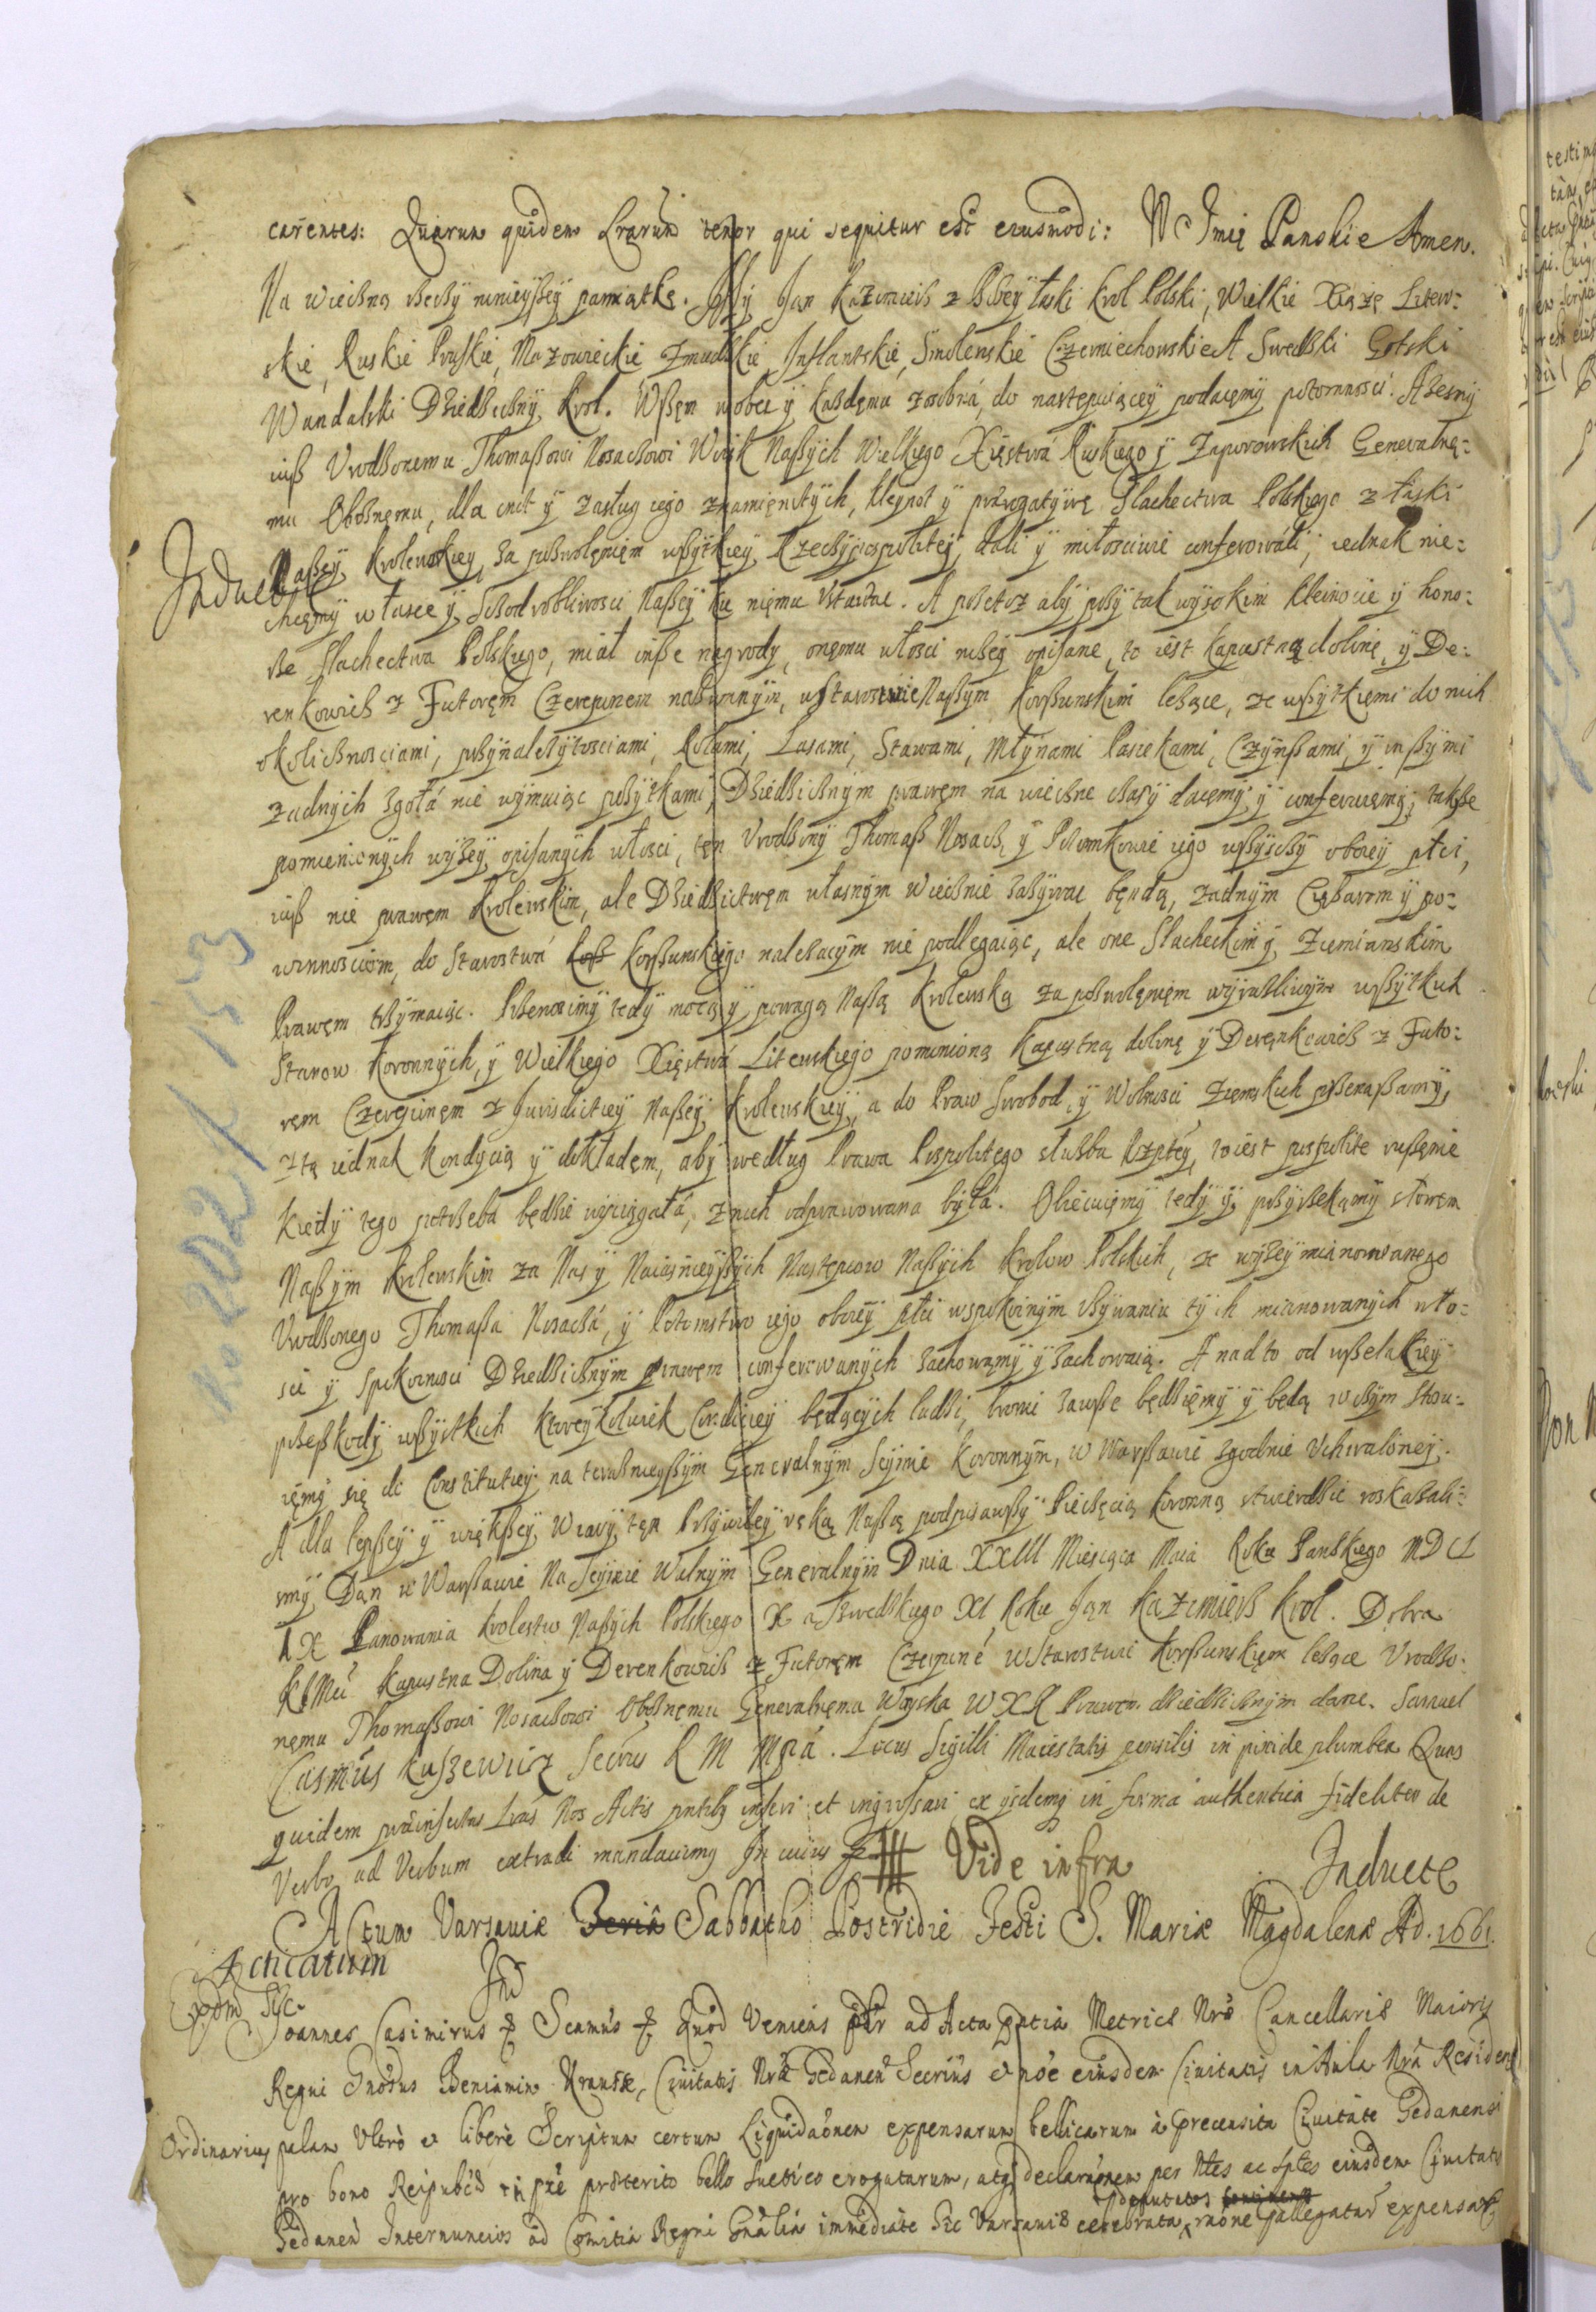 carentes: Quarum quidem Lrarum tenor qui sequitur est eiusmodi: W Imię Panskie Amen.
Na wieczną rzeczy ninieyszey pamiątkę. My Jan Kazimierz z Bożey łaski Krol Polski, Wielkie Xiążę Litew:
skie, Ruskie Pruskie, Mazowieckie Zmudzkie, Inflantskie, Smolenskie Czerniechowskie A Swedzki Gotski
Wandalski Dziedziczny Krol. Wszem wobec y każdemu zosobná, do następuiącey podaięmy potomności. Ażesmy
iusz Vrodzonemu Thomaszowi Nosachowi Woysk Naszych Wielkiego Xięstwá Ruskiego y Zaporowskich Generalnę:
mu Oboznęmu, dla cnit y zasług iego znamięnitych, kleynot y prærogatywę Slachectwa Polskiego z łaski
Naszey Krolewskiey za pozwolęnięm wszytkiey Rzeczypospolitey dali y miłosciwie conferowali, iednak nie:
Inducte
chcęmy w łasce y szczodrobliwosci Naszey ku nięmu Vstawac. A przetoz aby przy tak wysokim kleinocie y hono:
rze slachectwa Polskiego, miał insze nagrody, onęmu włosci niżey opisane, to iest Kapustną dolinę, y De:
renkowicz z Futoręm Czerepinem nazwanym, w Starostwie Naszym Korszunskim leżące, ze wszytkięmi do nich
okolicznosciami, przynależytosciami, Rolami, Lasami, Stawami, Młynami Pasiekami, Czynszami, y inszymi
zadnych zgołá nie wymuiąc pożytkami, Dziedzicznym prawęm na wieczne czasy daięmy y conferuięmy, takze
pomienionych wyżey opisanych włosci, tęn Vrodzony Thomasz Nosach y Potomkowie iego wszyscy oboiey płci,
iusz nie prawęm Krolewskim, ale Dziedzictwęm własnym wiecznie zażywac będą, zadnym Ciężarom y po:
winnosciom, do Starostwá Korszunskiego należacym nie podlegaiąc, ale one Slacheckim y Ziemianskim
Prawęm trzymaiąc. Przenosimy tedy mocą y powagą Naszą Krolewską za pozwolęnięm wyrazliwym wszytkich
Stanow Koronnych, y Wielkiego Xięstwá Litewskiego pominioną Kapustną dolinę y Deręnkowicz z Futo:
ręm Czerepinęm z Jurisdictiey Naszey Krolewskiey, a do Praw Swobod, y Wolnosci Ziemskich przenaszamy,
z tę iednak kondycią y dokładęm, aby według Prawa Pospolitego służba Rzptey, to iest pospolite ruszęnie
kiedy tego potrzeba będzie wyciągałá, z nich odprawowana byłá. Obiecuięmy tedy y przyrzekamy słowęm
Naszym Krolewskim za Nas y Naiasnieyszych Nastęmpcow Naszych Krolow Polskich, ze wyżey mianowanego
Vrodzonego Thomasza Nosachá, y Potomstwo iego oboiey płci w spokoinym vżywaniu tych mianowanych wło:
sci y spokoinosci Dziedzicznym prawęm conferowanych zachowamy y zachowaią. A nad to od wszelakiey
przeszkody wszystkich ktoreykolwiek Conditiey będących ludzi, bronic zawsze będzięmy y będą w czym stosu:
ięmy się do Constitutiey na teraznieyszym Generalnym Seymie Koronnym, w Warszawie zgodnie Vchwaloney.
A dla lepszey y większey Wiary tęn Przywiley ręką Naszą podpisawszy Pieczęcią Koronną stwierdzic roskazali:
smy Dan w Warszawie Na Seymie Walnym Generalnym Dnia XXIII Miesiąca Maia Roku Panskiego MDCL
IX Panowania Krolestw Naszych Polskiego X a Szwedzkiego XI Roku Jan Kazimierz Krol. Dobra
Kapustna Dolina y Derenkowicz z Futoręm Czerepine w Starostwie Korszunskięm leżące Vrodzo:
nęmu Thomaszowi Nosachowi Oboznęmu Generalnęmu Woyska W X R Prawem dziedzicznym dane. Samuel
Casimirus Kuszewicz Secrius R M Mppá. Locus Sigilli Maiestatis pensilis in pixide plumbea Quas
quidem præinsertas Lras Nos Actis pntibq inseri et ingrossari ex ijsdemq in forma authentica fideliter de
Verbo ad Verbum extradi mandauimq In cuius
Vide infra
Inducte
Actum Varsauiæ Feriâ Sabbatho Postridie Festi S. Mariæ Magdalenæ Ad. 1661.
Acticatum
Ind
Joannes Casimirus Scamus Quod Veniens ptr ad Acta pntia Metrices Nrę Cancellariæ Maioris
Regni Gnosus Beniamin Krause, Ciuitatis Nræ Gedanen Secrius et noe eiusdem Ciuitatis in Aula Nra Residens
Ordinarius palam Vltrò et liberè Scriptum certum Liquidaonem expensarum bellicarum à precensita Ciuitate Gedanensi
pro bono Reipubcæ præterito bello suetico erogatarum, atq declaraonem per Ntes ac Sptes eiusdem Ciuitatis
deputatos
Gedanen Internuncios ad Comitia Regni Gnalia immediate hic Varsauiæ celebrata, raone allegatar expensar
No 202 k 153